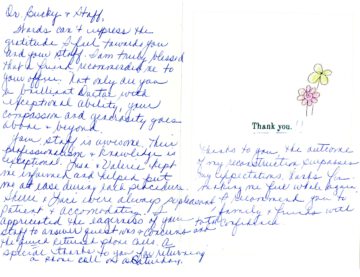 Dr. Bucky & Staff,
Words can't express the
gratitude I feel towards you
and your staff. I am truly blessed
that a friend recommended me to
your office. Not only are you
a brilliant doctor with
exceptional ability, your
compassion and generosity goes
above & beyond.
Your staff is awesome. Their
professionalism & knowledge is
exceptional. & Valerie kept
me informed and helped put
me at ease during each procedure.
& were always
patient & accomodating. I
appreciated the eagerness of your
staff to answer questions & concerns and
the quick returned phone calls. A
special thanks to you for returning
a phone call on a Saturday.
Thank you!!
Thanks to you the outcome
of my reconstruction surpasses
my expectations. Thanks for
making me feel whole again.
I recommend you to
family & friends with
total confidence